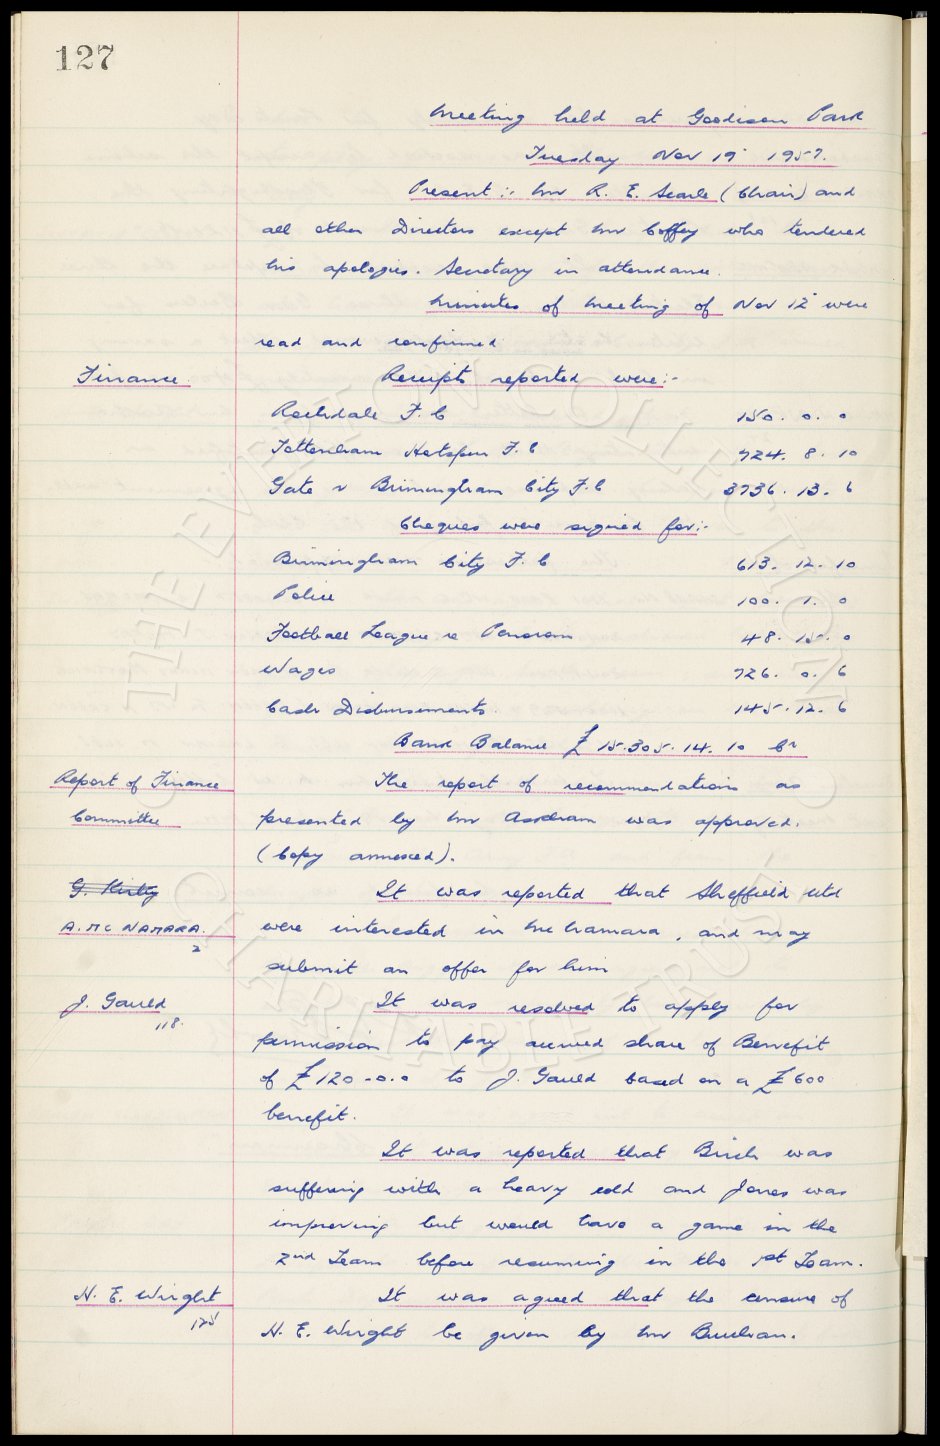 127
Meeting held at Goodison Park
Tuesday Nov 19 1957.
Present :- Mr R. E. Searle (Chair) and
all other Directors except Mr Coffey who tendered
his apologies. Secretary in attendance.
Minutes of Meeting of Nov 12 were
read and confirmed
Finance. Receipts reported were:-
Rochdale F. C 150. 0. 0
Tottenham Hotspur F. C 724. 8. 10
Gate v Birmingham City F. C 3736. 13. 6
Cheques were signed for:-
Birmingham City F. C 613. 12. 10
Police 100. 1. 0
Football League re Panoram 48. 15. 0
Wages 726. 0. 6
Cash Disbursements. 145. 12. 6
Bank Balance £15.305. 14. 10 Cr
Report of Finance The report of recommendations as
Committee presented by Mr Askham was approved.
(Copy annexed).
G. Kirby It was reported that Sheffield Utd
A. Mc NAMARA. were interested in McNamara, and may
2
submit an offer for him
J. Gauld It was resolved to apply for
118.
permission to pay accrued share of Benefit
of £120-0.0 to J. Gauld based on a £600
benefit.
It was reported that Birch was
suffering with a heavy cold and Jones was
improving but would have a game in the
2nd Team before resuming in the 1st Team.
H. E. Wright It was agreed that the censure of
125
H. E. Wright be given by Mr Buchan.
THE EVERTON COLLECTION
CHARITABLE TRUST